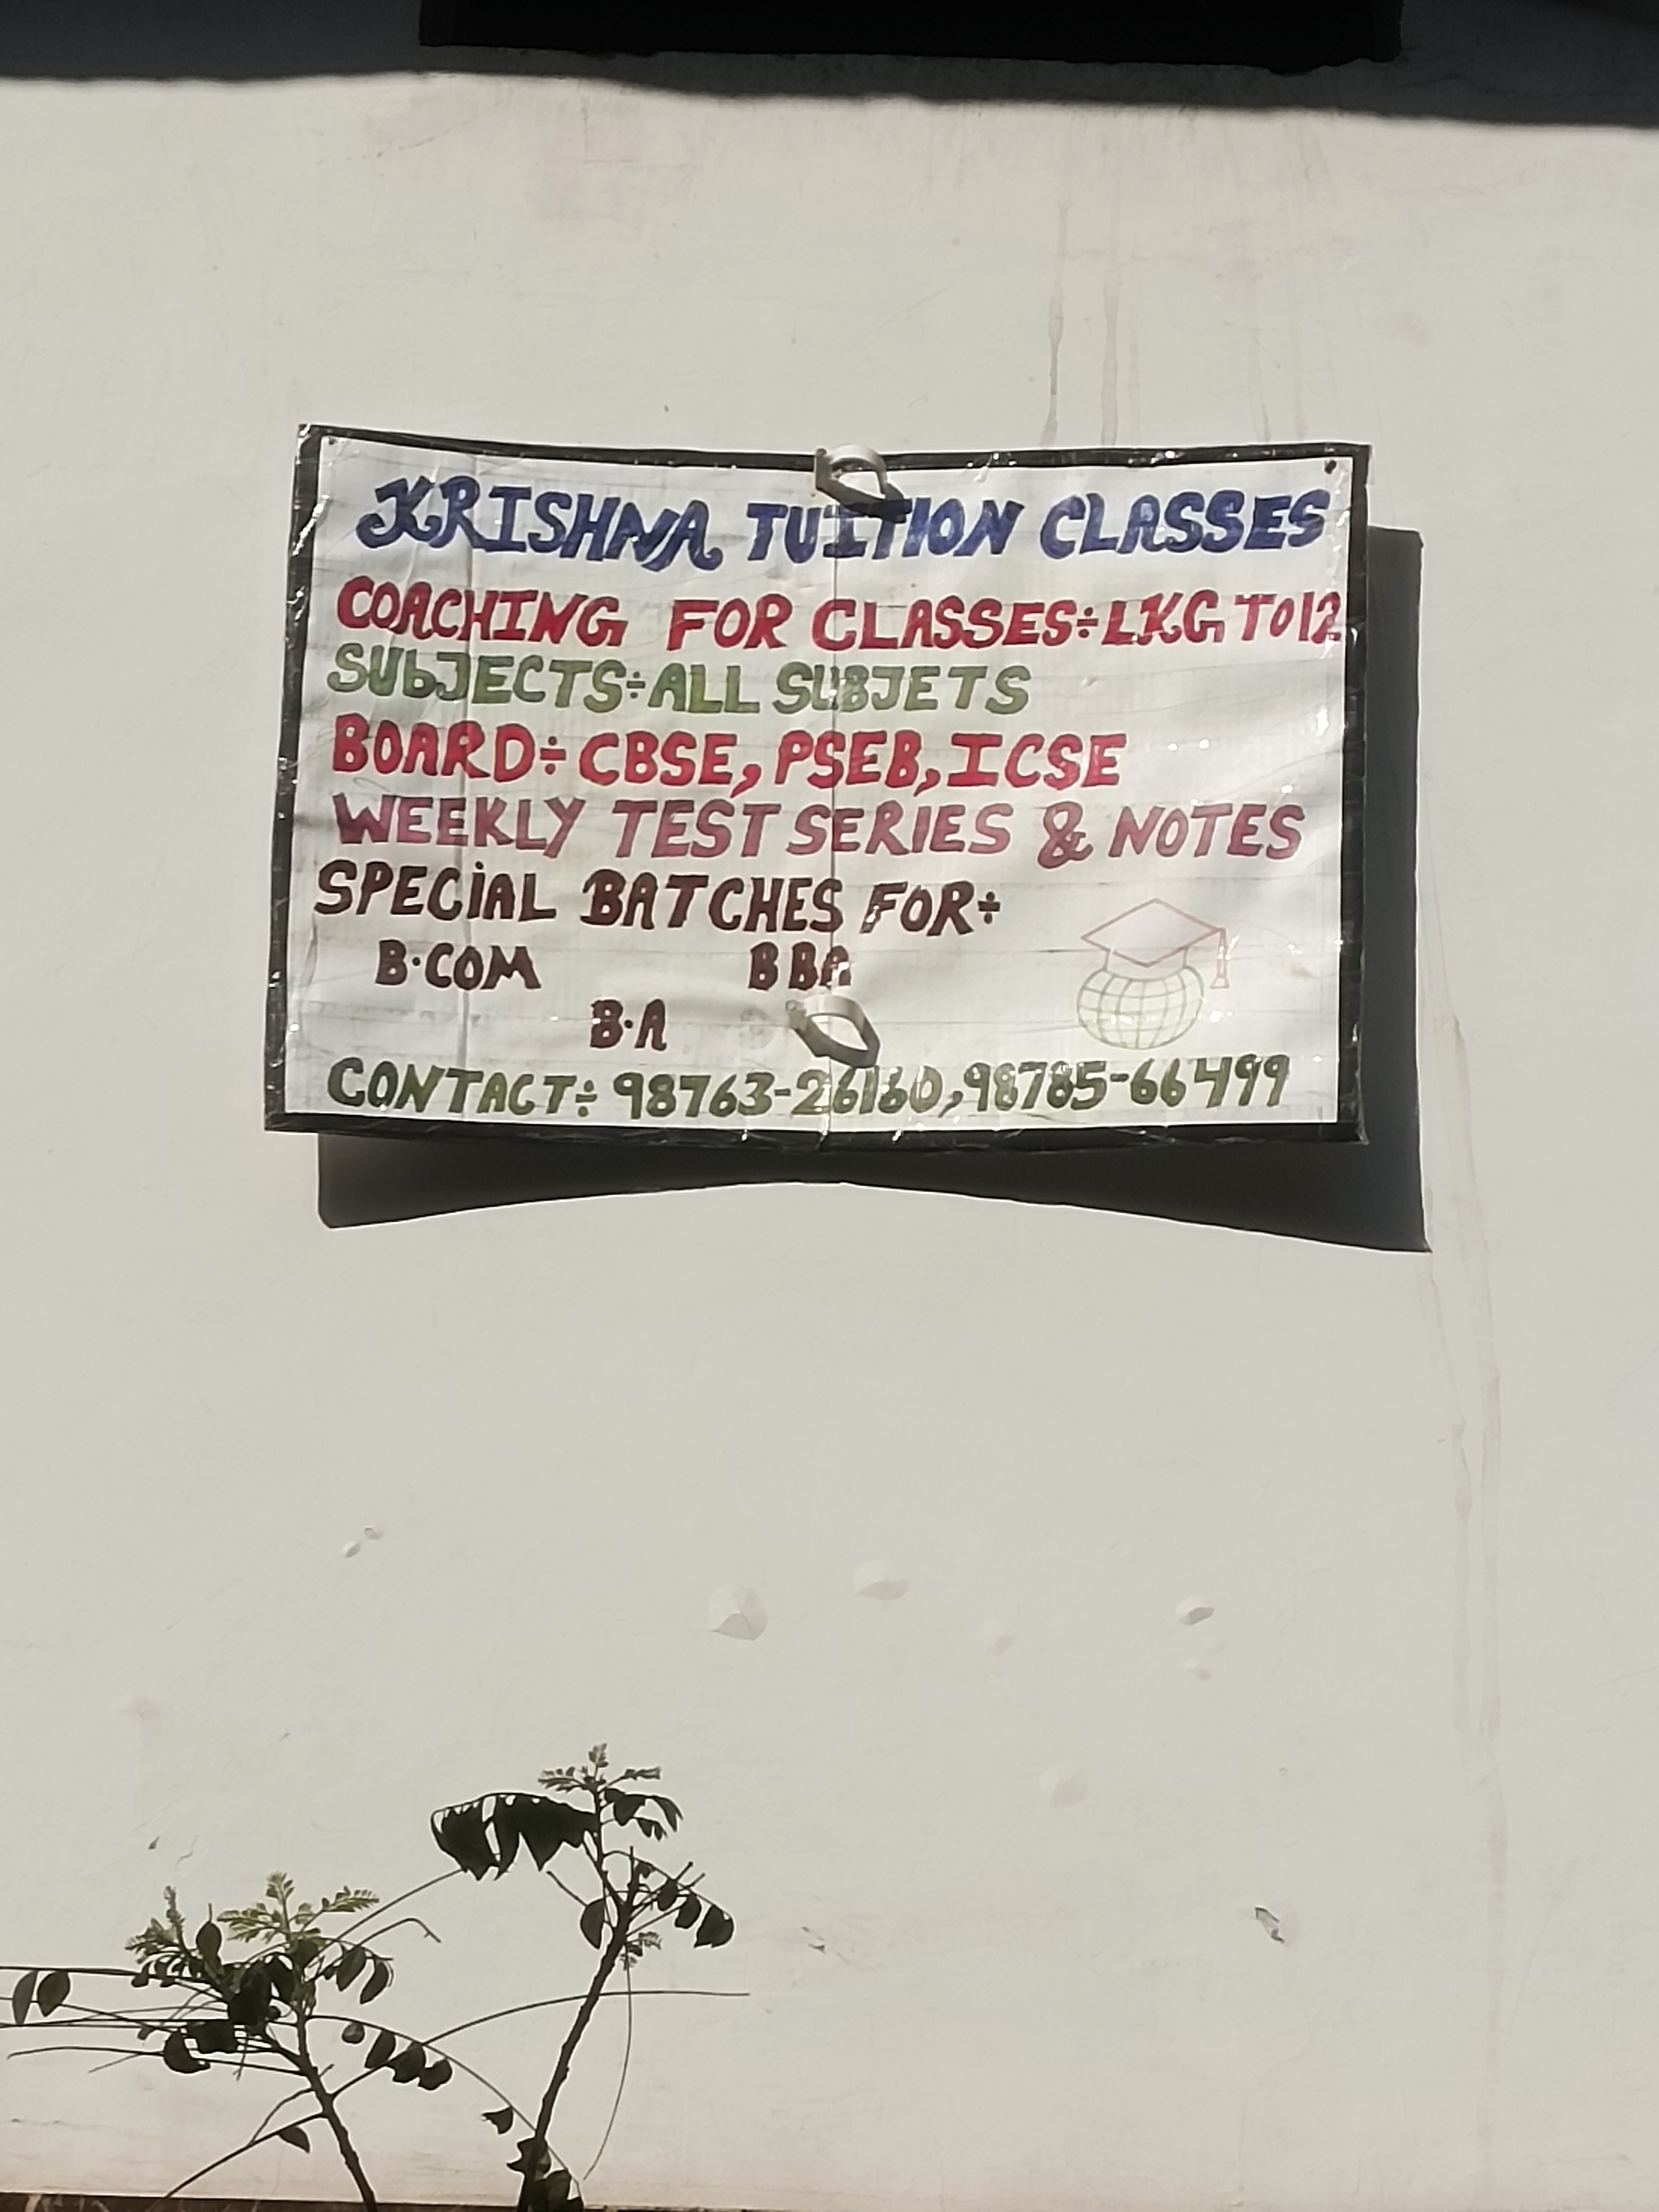 KRISHNA TUITION CLASSES
COACHING FOR CLASSES÷LKG TO 12
SUbJECTS÷ALL SUBJETS
BOARD÷CBSE, PSEB, ICSE
WEEKLY TEST SERIES & NOTES
SPECiAL BATCHES FOR÷
B·COM BBA
B·A
CONTACT÷98763-26160,98785-66499